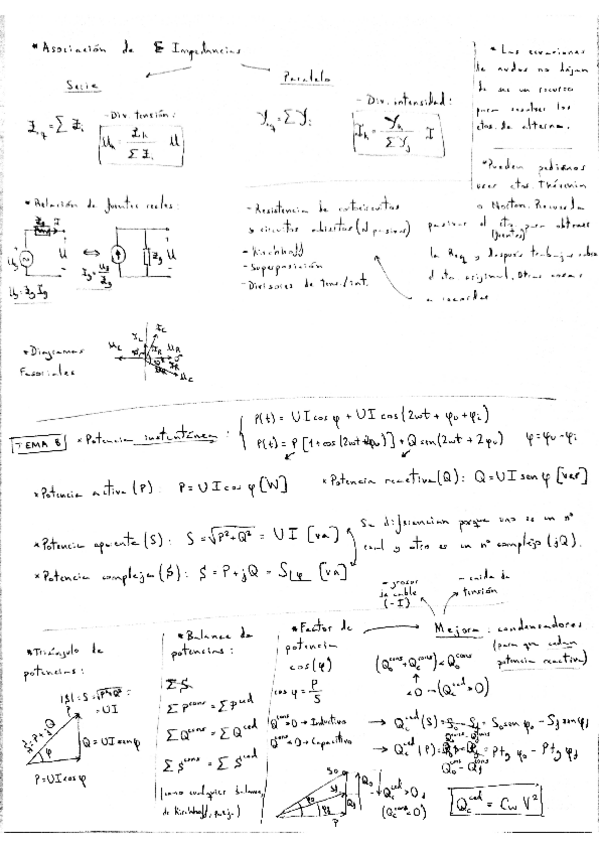 * Asociación de Impedancias
Serie
Paralelo
Z_eq = Σ Z_i
- Div. tensión:
U_k = Z_k / Σ Z_i U
Y_eq = Σ Y_i
- Div. intensidad:
I_k = Y_k / Σ Y_j I
* Las ecuaciones
de nudos no dejan
de ser un recurso
para resolver los
ctos. de alterna.
* Pueden pedirnos
usar ctos. Thévenin
o Norton. Recuerda
pasivar el cto para obtener
(fuentes)
la Req y después trabajar sobre
el cto original. Otras cosas
a recordar
* Relación de fuentes reales:
Z_g I
U_g U ⇔ I_g = U_g / Z_g Z_g U
U_g = Z_g I_g
- Resistencia de cortocircuitos
y circuitos abiertos (al pasivar)
- Kirchhoff
- Superposición
- Divisores de tens./int.
* Diagramas
Fasoriales
TEMA 8
* Potencia instantánea:
P(t) = UI cos φ + UI cos(2wt + φ_u + φ_i)
P(t) = P [1 + cos(2wt + 2φ_u)] + Q sen(2wt + 2φ_u) φ = φ_u - φ_i
* Potencia activa (P): P = UI cos φ [W]
* Potencia reactiva (Q): Q = UI sen φ [var]
* Potencia aparente (S): S = √P²+Q² = UI [va]
* Potencia compleja ($): $ = P + jQ = S∟φ [va]
Se diferencian porque uno es un nº
real y otro es un nº complejo (jQ).
- grosor
de cable
(- I)
- caida de
tensión
* Triángulo de
potencias:
|$| = S = √P²+Q² =
= UI
$ = P + jQ
φ
Q = UI sen φ
P = UI cos φ
* Balance de
potencias:
Σ P^cons = Σ P^ced
Σ Q^cons = Σ Q^ced
Σ $^cons = Σ $^ced
(como cualquier balance,
de Kirchhoff, p.ej.)
* Factor de
potencia
cos(φ)
cos φ = P / S
Q^cons > 0 → Inductivo
Q^cons < 0 → Capacitivo
Mejora: condensadores
(para que cedan
potencia reactiva)
(Q_o^cons + Q_c^cons) < Q_o^cons
< 0 → (Q_c^ced > 0)
→ Q_c^ced (S) = S_o sen φ_o - S_f sen φ_f
→ Q_c^ced (P) = P tg φ_o - P tg φ_f
Q_c^ced > 0
(Q_c^cons < 0)
Q_c^ced = C w V²